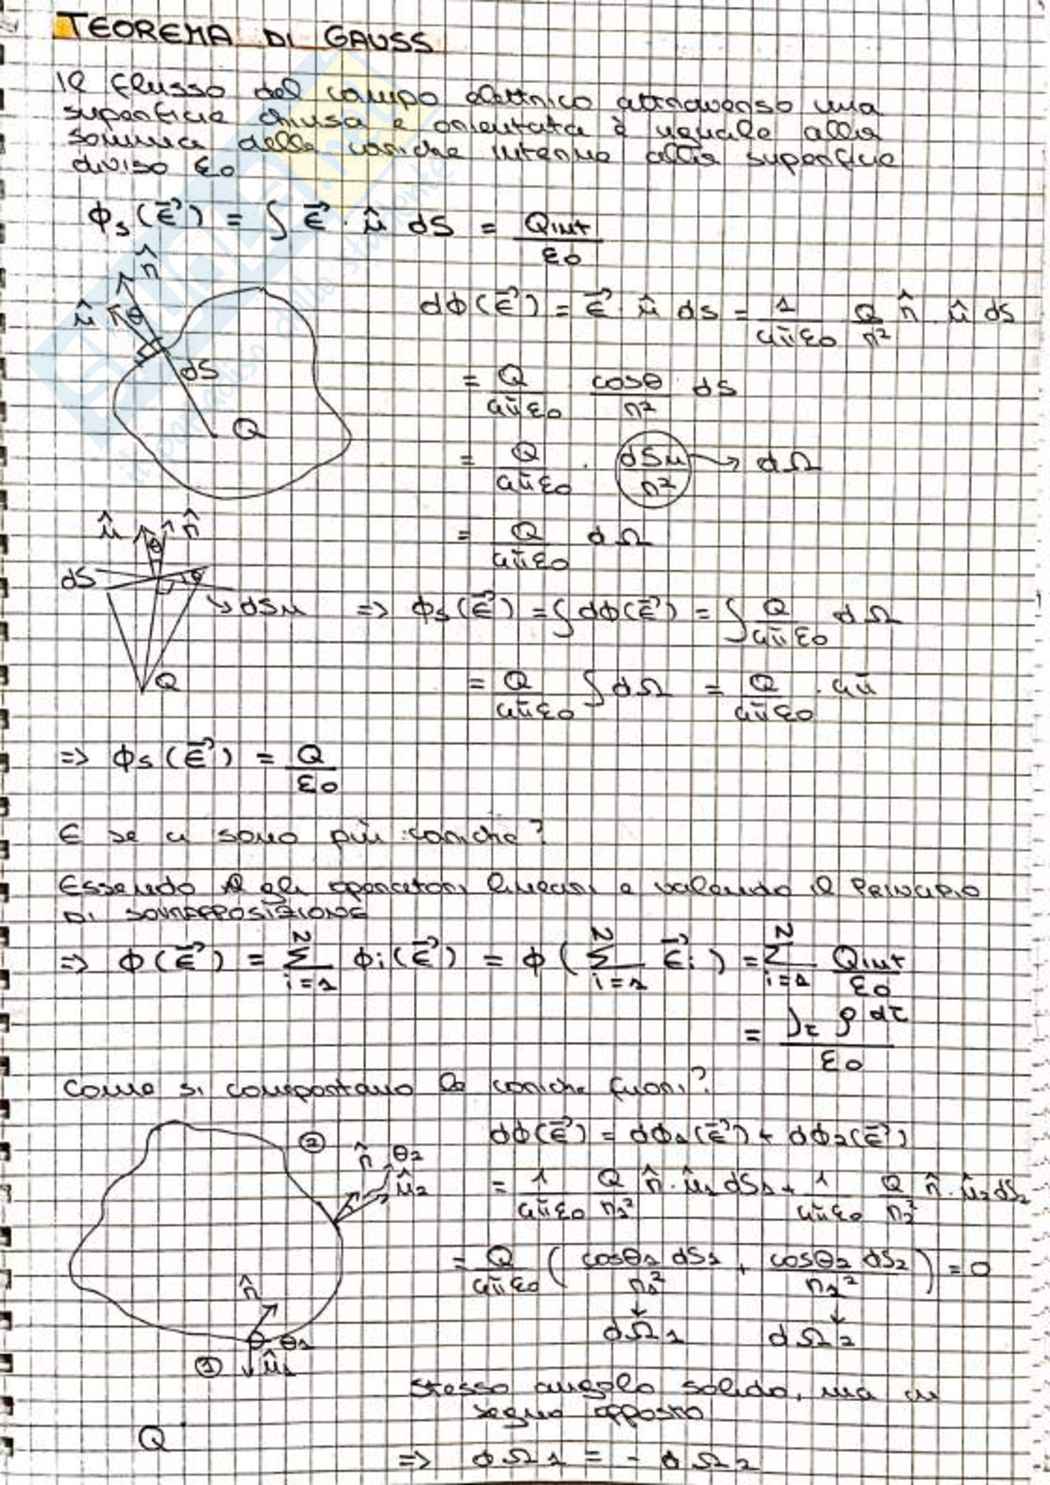 TEOREMA DI GAUSS
Il flusso del campo elettrico attraverso una
superficie chiusa e orientata è uguale alla
somma delle cariche interne alla superficie
diviso ε0
ϕs(E⃗) = ∫ E⃗ · û dS = Qint/ε0
r̂
û θ
dS
Q
dϕ(E⃗) = E⃗ · û dS = 1/4πε0 Q/r² r̂ · û dS
= Q/4πε0 cosθ/r² dS
= Q/4πε0 · dSu/r² → dΩ
= Q/4πε0 dΩ
û θ r̂
dS θ
dSu
Q
=> ϕs(E⃗) = ∫ dϕ(E⃗) = ∫ Q/4πε0 dΩ
= Q/4πε0 ∫ dΩ = Q/4πε0 · 4π
=> ϕs(E⃗) = Q/ε0
E se ci sono più cariche?
Essendo gli operatori lineari e valendo il PRINCIPIO
DI SOVRAPPOSIZIONE
=> ϕ(E⃗) = Σ i=1 N ϕi(E⃗) = ϕ(Σ i=1 N E⃗i) = Σ i=1 N Qint/ε0
= ∫τ ρ dτ/ε0
Come si comportano le cariche fuori?
② r̂ θ2
û2
r̂
θ1
① û1
Q
dϕ(E⃗) = dϕ1(E⃗) + dϕ2(E⃗)
= 1/4πε0 Q/r1² r̂ · û1 dS1 + 1/4πε0 Q/r2² r̂ · û2 dS2
= Q/4πε0 (cosθ1 dS1/r1² + cosθ2 dS2/r2²) = 0
dΩ1 dΩ2
stesso angolo solido, ma di
segno opposto
=> dΩ1 = - dΩ2